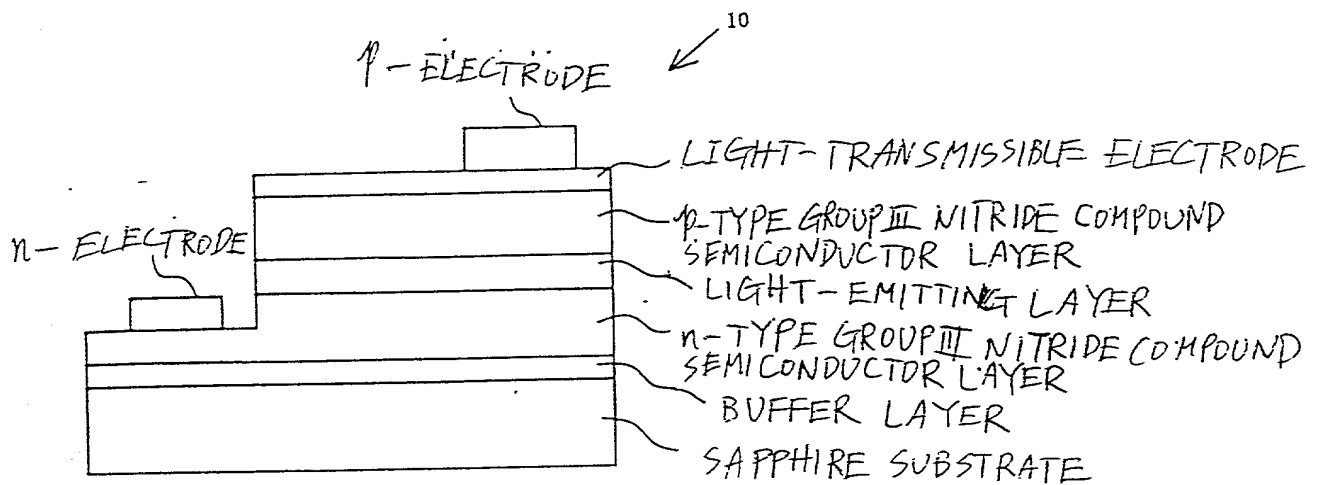 10
p-ELECTRODE
LIGHT-TRANSMISSIBLE ELECTRODE
p-TYPE GROUP III NITRIDE COMPOUND
SEMICONDUCTOR LAYER
n-ELECTRODE
LIGHT-EMITTING LAYER
n-TYPE GROUP III NITRIDE COMPOUND
SEMICONDUCTOR LAYER
BUFFER LAYER
SAPPHIRE SUBSTRATE